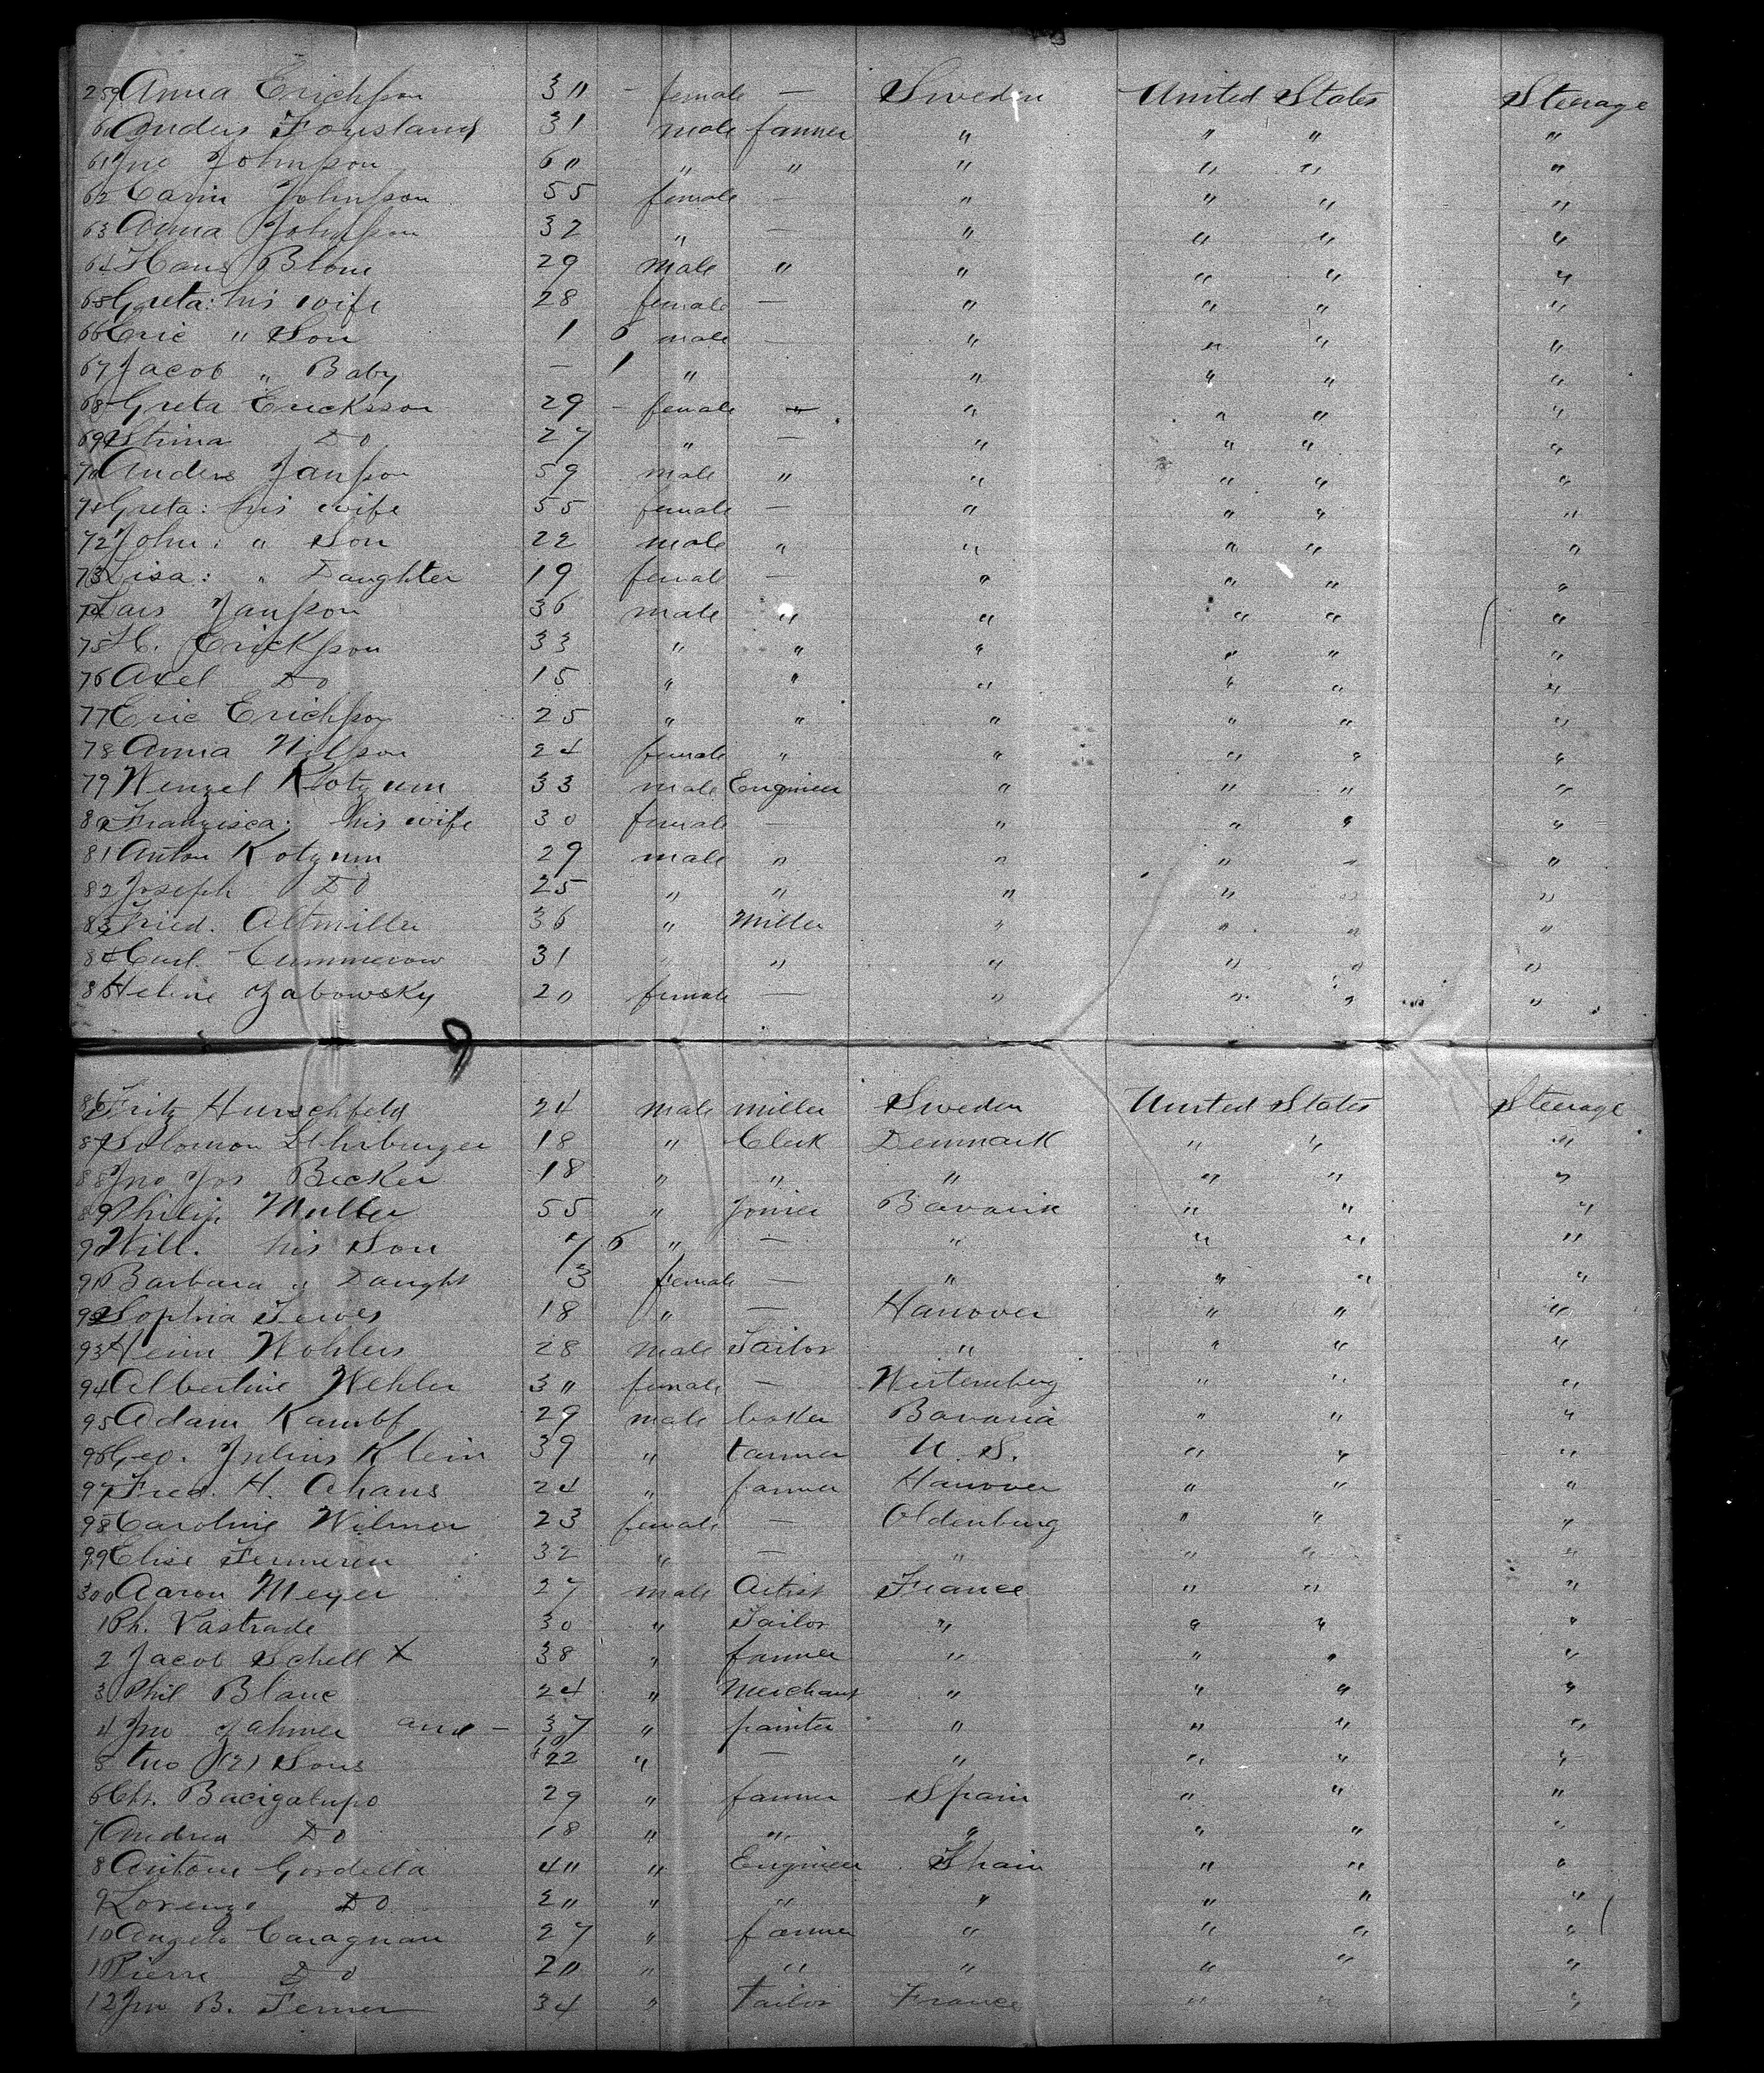 259 Anna Erichson 3" - female — Sweden United States Steerage
60 Anders Forsland 31 male farmer " " " "
61 Jno Johnson 6" " " " " " "
62 Carin Johnson 55 female — " " " "
63 Anna Johnson 32 " — " " " "
64 Hans Blom 29 male " " " " "
65 Greta: his wife 28 female — " " " "
66 Eric " Son 1 6 male — " " " "
67 Jacob " Baby — 1 " " " " "
68 Greta Ericksson 29 - female — " " " "
69 Stina Do 27 " — " " " "
70 Anders Janson 59 male " " " " "
71 Greta: his wife 55 female — " " " "
72 John: " Son 22 male " " " " "
73 Lisa: " Daughter 19 female — " " " "
74 Lars Janson 36 male " " " " "
75 H. Erickson 33 " " " " " "
76 Axel Do 15 " " " " " "
77 Eric Erichson 25 " " " " " "
78 Anna Nilson 24 female " " " " "
79 Wenzel Kotzum 33 male Engineer " " " "
80 Franzisca: his wife 30 female — " " " "
81 Anton Kotzum 29 male " " " " "
82 Joseph Do 25 " " " " " "
83 Fried. Altmiller 36 " Miller " " " "
84 Carl Cummerow 31 " " " " " "
85 Helene Zabowsky 20 female — " " " "
9
86 Fritz Hurschfeld 24 male miller Sweden United States Steerage
87 Solomon Lehrburger 18 " Clerk Denmark " " "
88 Jno Jos Becker 18 " " " " " "
89 Philip Muller 55 " Joiner Bavaria " " "
90 Will. his Son 7 6 " — " " " "
91 Barbara " Daught 3 female — " " " "
92 Sophia Tewes 18 " — Hanover " " "
93 Heinr Wohlers 28 male Tailor " " " "
94 Albertine Wehler 3" female — Wirtemberg " " "
95 Adam Kambf 29 male baker Bavaria " " "
96 Geo. Julius Klein 39 " tanner U. S. " " "
97 Fred. H. Ahaus 24 " farmer Hanover " " "
98 Caroline Wilmer 23 female — Oldenburg " " "
99 Elise 32 " — " " " "
300 Aaron Meyer 27 male Artist France " " "
1 Ph. Vastrade 30 " Tailor " " " "
2 Jacob Schell X 38 " farmer " " " "
3 Phil Blanc 24 " Merchant " " " "
4 Jno Zahner and — 37 " painter " " " "
5 two (2) Sons 22 " — " " " "
6 Chr. Bacigalupo 29 " farmer Spain " " "
7 Andrea Do 18 " " " " " "
8 Antoni Gordella 4" " Engineer Spain " " "
9 Lorenzo Do 2" " " " " " "
10 Angelo Caragnan 27 " farmer " " " "
11 Pierre Do 2" " " " " " "
12 Jno B. Ferner 34 " Tailor France " " "